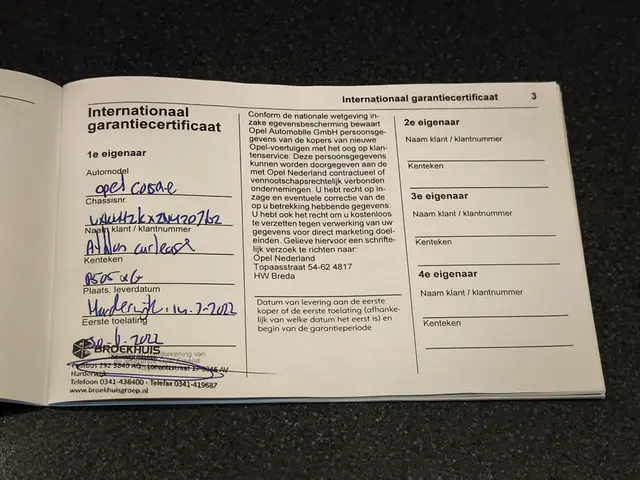 Internationaal garantiecertificaat 3
Internationaal
garantiecertificaat
1e eigenaar
Automodel
opel corsa-e
Chassisnr
Naam klant / klantnummer
Kenteken
Plaats, leverdatum
Harderwijk. 14-7-2022
Eerste toelating
2022
BROEKHUIS
Postbus 292 3840 AG - Lorentzstraat
Harderwijk
Telefoon 0341-438400 - Telefax 0341-419687
www.broekhuisgroep.nl
Conform de nationale wetgeving in-
zake egevensbescherming bewaart
Opel Automobile GmbH persoonsge-
gevens van de kopers van nieuwe
Opel-voertuigen met het oog op klan-
tenservice. Deze persoonsgegevens
kunnen worden doorgegeven aan de
met Opel Nederland contractueel of
vennootschapsrechtelijk verbonden
ondernemingen. U hebt recht op in-
zage en eventuele correctie van de
op u betrekking hebbende gegevens.
U hebt ook het recht om u kosteloos
te verzetten tegen verwerking van uw
gegevens voor direct marketing doel-
einden. Gelieve hiervoor een schrifte-
lijk verzoek te richten naar:
Opel Nederland
Topaasstraat 54-62 4817
HW Breda
Datum van levering aan de eerste
koper of de eerste toelating (afhanke-
lijk van welke datum het eerst is) en
begin van de garantieperiode
2e eigenaar
Naam klant / klantnummer
Kenteken
3e eigenaar
Naam klant / klantnummer
Kenteken
4e eigenaar
Naam klant / klantnummer
Kenteken